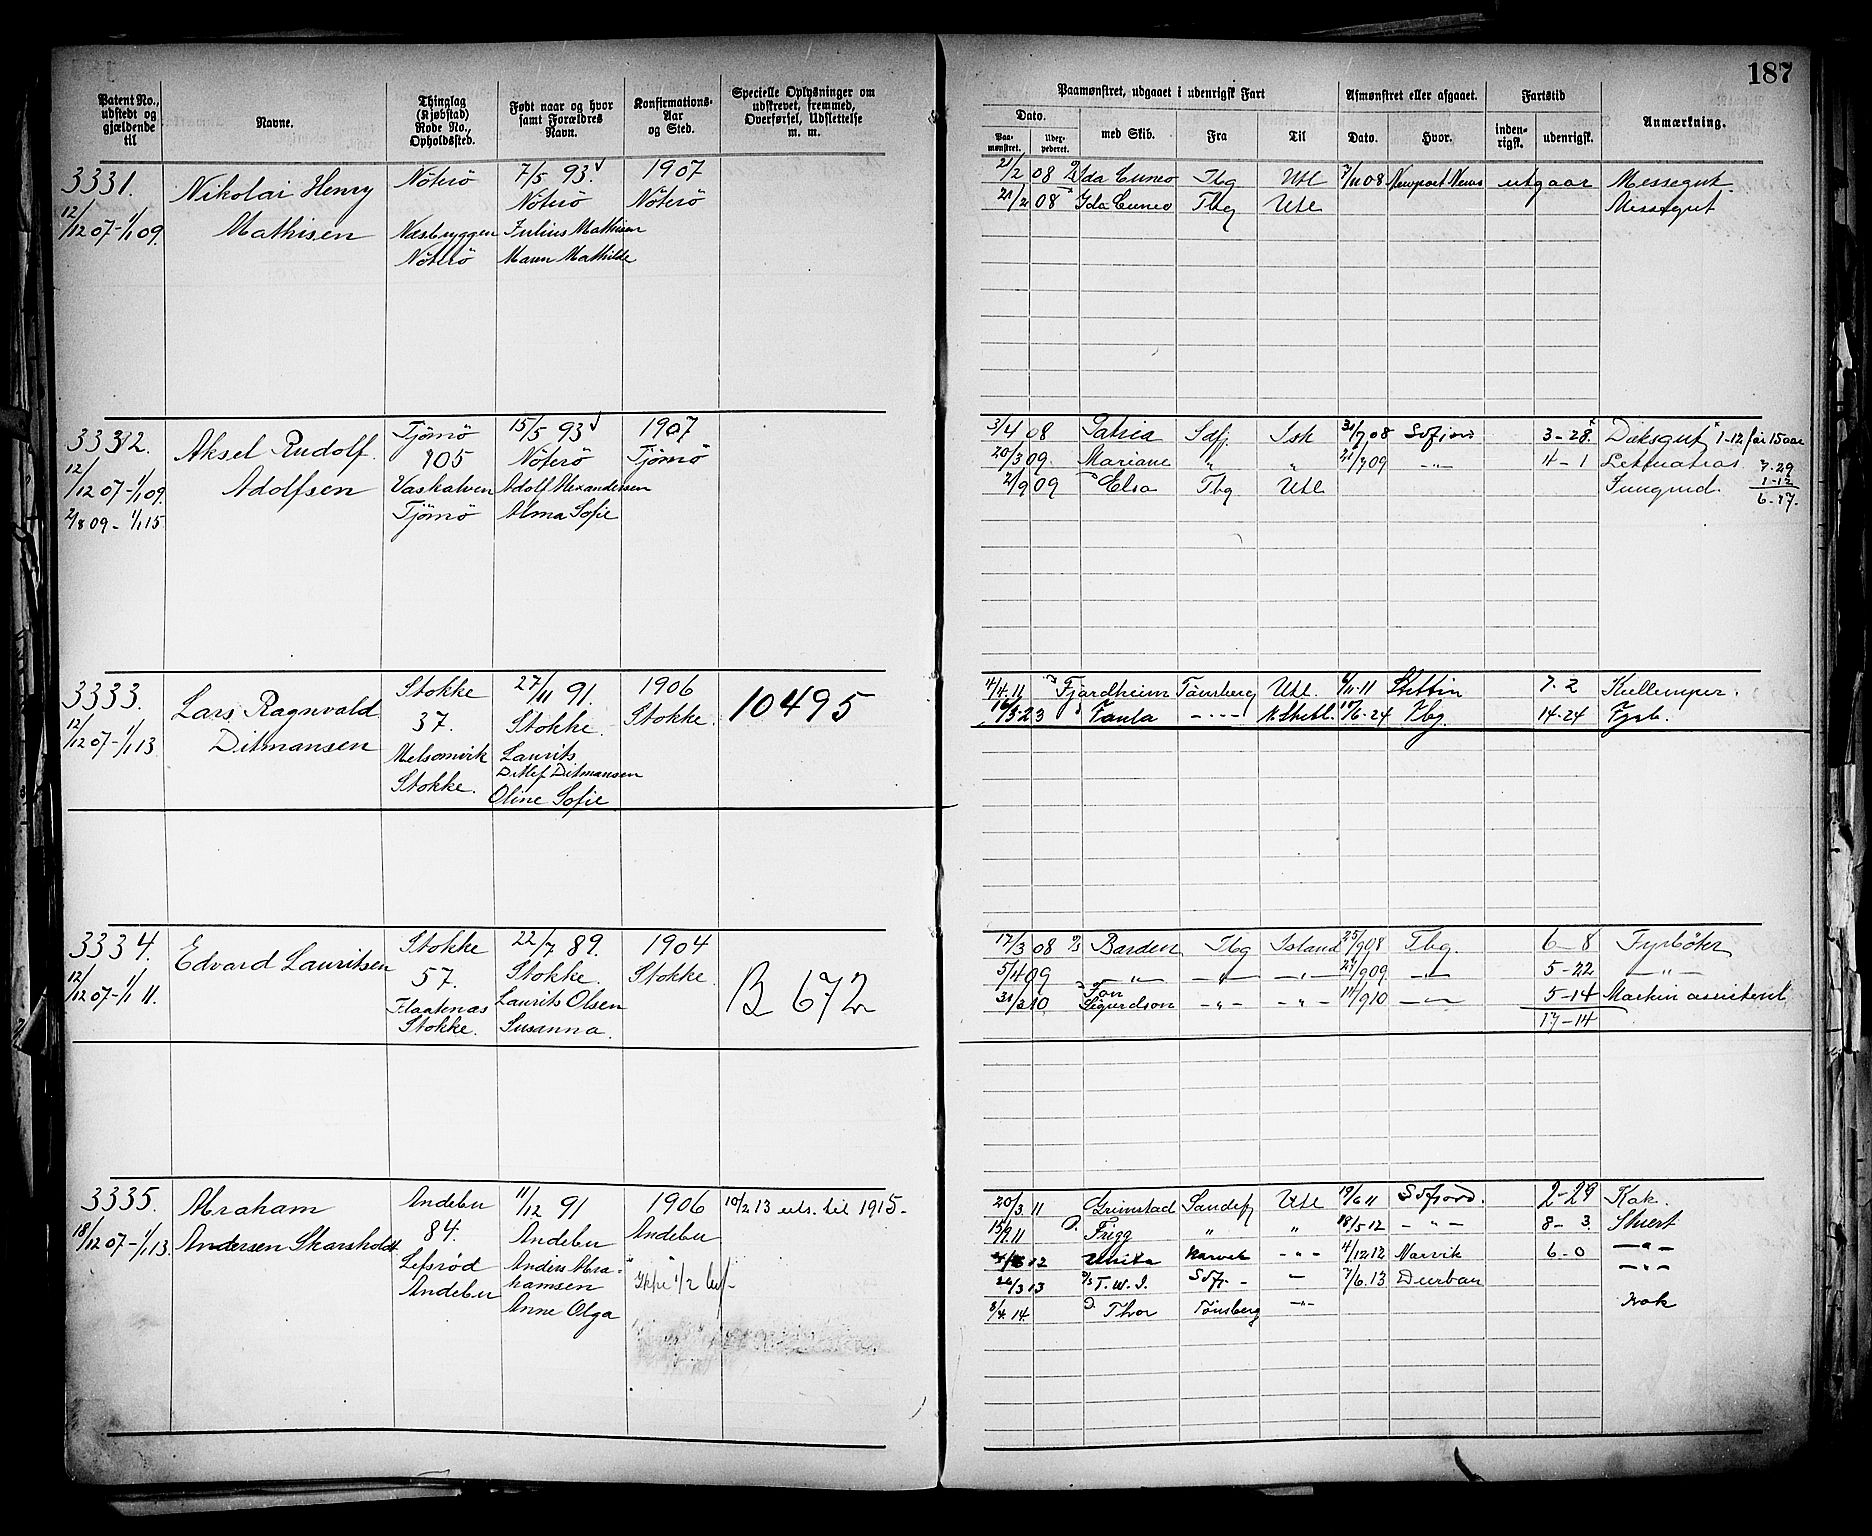 187
Patent No., udstedt og gjældende til
Navne.
Thinglag (Kjøbstad) Rode No., Opholdssted.
Født naar og hvor samt Forældres Navn.
Konfirmations-Aar og Sted.
Specielle Oplysninger om udskrevet, fremmed, Overførsel, Udslettelse m. m.
Paamønstret, udgaaet i udenrigsk Fart
Dato.
Paa-mønstret.
med Skib.
Fra
Til
Afmønstret eller afgaaet.
Dato.
Hvor.
Fartstid
inden-rigsk.
udenrigsk.
Anmærkning.
3331. Nikolai Henry Nöterö 7/5 93. 1907
Nöterö Nöterö
12/12 07-1/1 09. Mathisen Næsbryggen Julius Mathisen
Nöterö Maren Mathilde
21/2 08 Ida Cuneo Tbg Utl 7/11 08 Newport News utgaar Messegut.
21/2 08 Ida Cuneo Tbg Utl Messegut
3332. Aksel Rudolf Tjömö 15/5 93 1907
905 Nöterö Tjömö
12/12 07-1/1 09 Adolfsen Vaskalven Adolf Alexandersen
2/8 09-1/1 15 Tjömö Alma Sofie
3/4 08 Patria Sdfj. Ish 31/7 08 Sdfjord 3-28. Dæksgut 1-12 før 15 aar
20/3 09. Mariane " " 21/7 09 -"- 4-1 Letmatros 7.29
2/9 09 Elsa Tbg Utl Jungmd. 1-12
6-17.
3333. Lars Ragnvald Stokke 27/11 91. 1906 10495
37. Stokke. Stokke.
12/12 07-1/1 13 Ditmansen Melsomvik Laurits
Ditlef Ditmansen
Stokke. Oline Sofie
14/4 11 Fjordheim Tønsberg Utl. 6/11-11 Stettin 7-2 Kullemper.
16/3-23 Taula -"- 17/6-24 Tbg. 14-24 Fyrb.
3334. Edvard Lauritsen Stokke 22/7 89. 1904
57. Stokke. Stokke. B 672
12/12 07-1/1 11. Flaatenas Laurits Olsen
Stokke. Susanna.
17/3 08 Barden Tbg Island 25/9 08 Tbg. 6-8 Fyrböter
5/4 09 -"- -"- -"- 24/9 09 -"- 5-22 -"-
31/3 10 Jon Sigurdson -"- -"- 14/9 10 -"- 5-14 Maskin assistent
17-14
3335. Abraham Andebu 11/12 91 1906 10/2 13 uts. til 1915-
84. Andebu Andebu
18/12 07-1/1 13. Andersen Skarsholdt Lefsrød Anders Abra-
Andebu hamsen
Anne Olga
20/3 11 Grimstad Sandefj Utl 19/6 11 Sdfjord. 2-29 Kok.
15/9 11 Frigg " " 18/5 12 -"- 8-3. Stuert
12 Unita Narvik -"- 4/12 12 Narvik 6-0 -"-
26/3 13 T. W. I. Sdfj. - - 7/6.13 Durban -"-
8/4.14 Thor Tönsberg -"- Kok